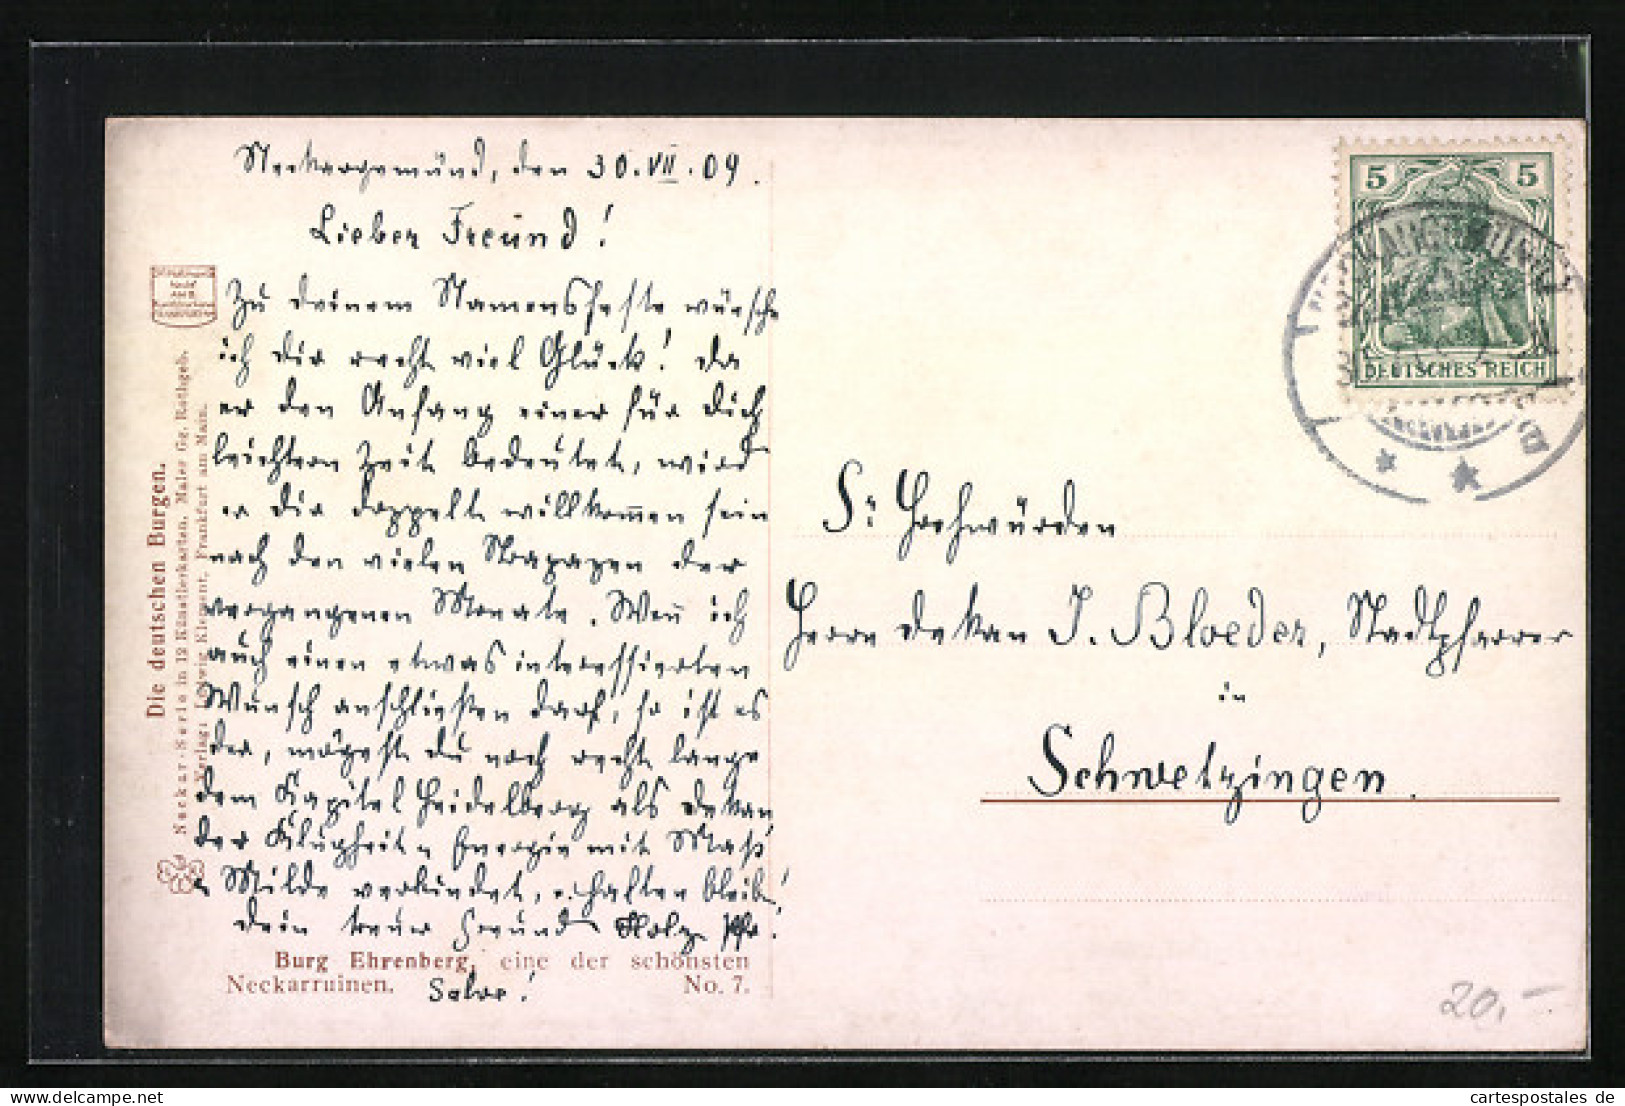 Neckargemünd, den 30.VII.09.
Lieber Freund!
Zu deinem Namensfeste wünsche
ich dir recht viel Glück! Da
er den Anfang einer für dich
leichtern Zeit bedeutet, wird
er dir doppelt willkom̄en sein
nach den vielen Strapazen der
vergangenen Monate. Wen̄ ich
auch einen etwas interessierten
Wunsch anschließen darf, so ist es
der, mögest du noch recht lange
dem Kapitel Heidelberg als Dekan,
der Klugheit u Energie mit Maß
u Milde verbindet, erhalten bleiben!
Dein treuer Freund Holz Pfr.
Salve!
Die deutschen Burgen.
Neckar-Serie in 12 Künstlerkarten, Maler Gg. Rothgeb.
Verlag: Ludwig Klement, Frankfurt am Main.
Burg Ehrenberg, eine der schönsten
Neckarruinen. No. 7.
5 5
DEUTSCHES REICH
Sr Hochwürden
Herrn Dekan J. Bloeder, Stadtpfarrer
in
Schwetzingen.
20,-
cartespostales de